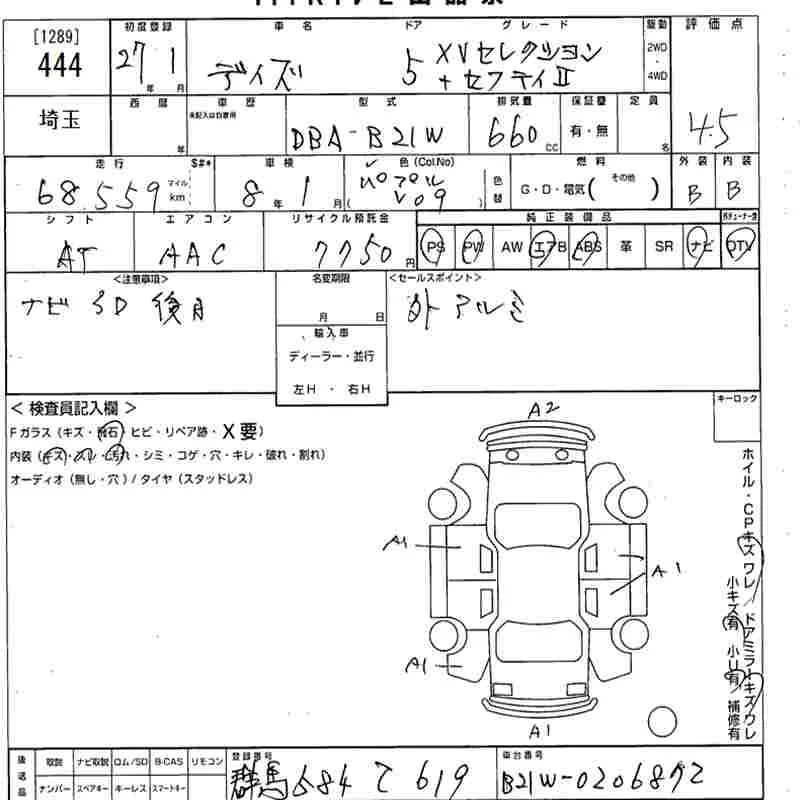 [1289]
444
埼玉
初度登録 27年 1月
車名 デイズ
ドア 5
グレード XVセレクション
+セフティⅡ
駆動 2WD・4WD
評価点 4.5
西暦 年
車歴
未記入は自家用
型式 DBA-B21W
排気量 660cc
保証書 有・無
定員 名
走行 68,559 マイル km
S#*
車検 8年 1月
色(Col.No)
V09
色替
燃料 G・D・電気( その他 )
外装 B
内装 B
シフト AT
エアコン AAC
リサイクル預託金 7750円
純正装備品
PS PW AW エアB ABS 革 SR ナビ DTV
<注意事項>
ナビSD後日
名変期限
月 日
輸入車
ディーラー・並行
左H ・ 右H
<セールスポイント>
外アルミ
<検査員記入欄>
Fガラス(キズ・飛石・ヒビ・リペア跡・X要)
内装(キズ・スレ・汚れ・シミ・コゲ・穴・キレ・破れ・割れ)
オーディオ(無し・穴)/タイヤ(スタッドレス)
キーロック
A2
A1
A1
A1
A1
ホイル・CPキズワレ/ドアミラーキズワレ
小キズ有 小U有 補修有
後送品
取説 ナビ取説 ロム/SD B-CAS リモコン
ナンバー スペアキー キーレス スマートキー
登録番号
群馬 584 て 619
車台番号
B21W-0206872